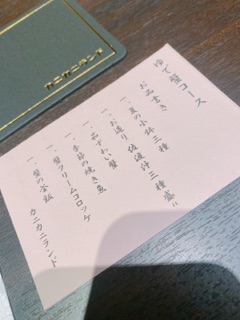 カニカニランド
ゆで蟹コース
お品書き
一、夏の小鉢三種
一、お造り 佐渡沖三種盛り
一、一品ずわい蟹
一、季節の焼き魚
一、蟹クリームコロッケ
一、蟹の釜飯
カニカニランド